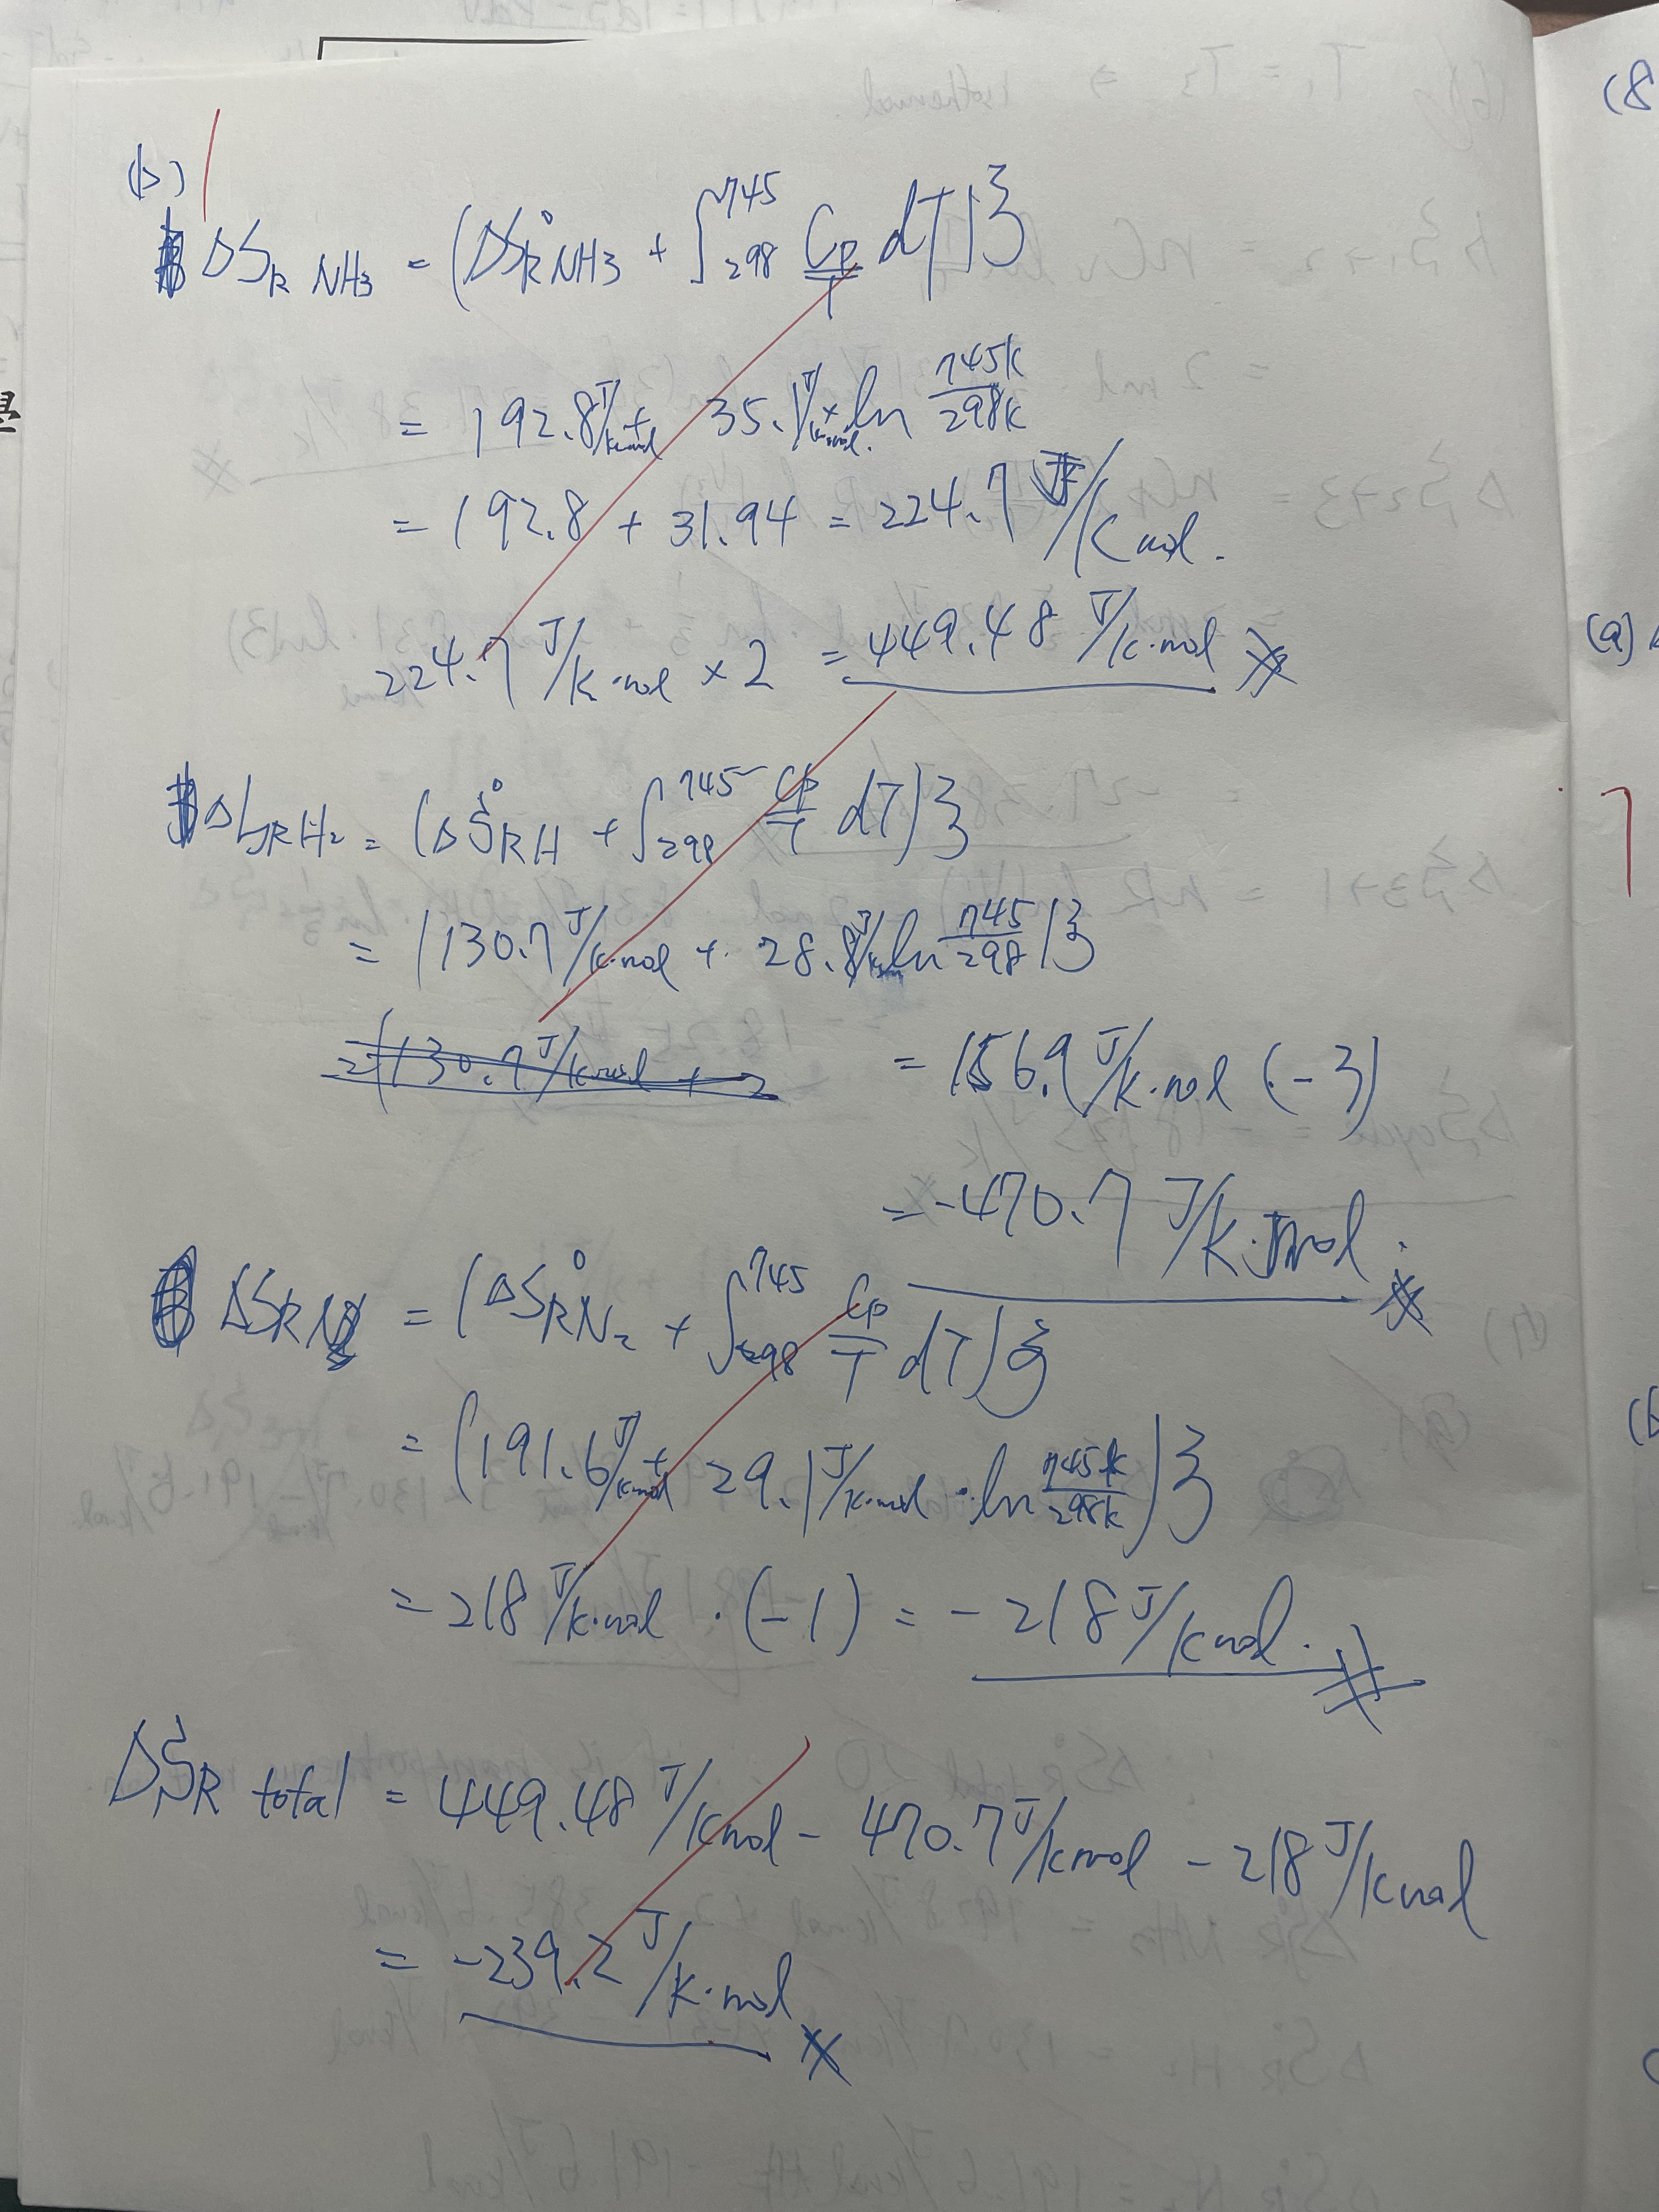 (b)
ΔS_R NH3 = (ΔS°_R NH3 + ∫_298^745 Cp/T dT)ξ
= 192.8 J/K·mol + 35.1 J/K·mol × ln 745K/298K
= 192.8 + 31.94 = 224.7 J/K mol.
224.7 J/K·mol × 2 = 449.48 J/K·mol
ΔS_R H2 = (ΔS°_R H + ∫_298^745 Cp/T dT)ξ
= (130.7 J/K·mol + 28.8 J/K·mol ln 745/298)ξ
= (130.7 J/K·mol + 2
= 156.9 J/K·mol (·-3)
= -470.7 J/K·mol.
ΔS_R N2 = (ΔS°_R N2 + ∫_298^745 Cp/T dT)ξ
= (191.6 J/K·mol + 29.1 J/K·mol · ln 745K/298K)ξ
= 218 J/K·mol · (-1) = -218 J/K mol.
ΔS_R total = 449.48 J/K mol - 470.7 J/K mol - 218 J/K mol
= -239.2 J/K·mol
(8
(a)
(b